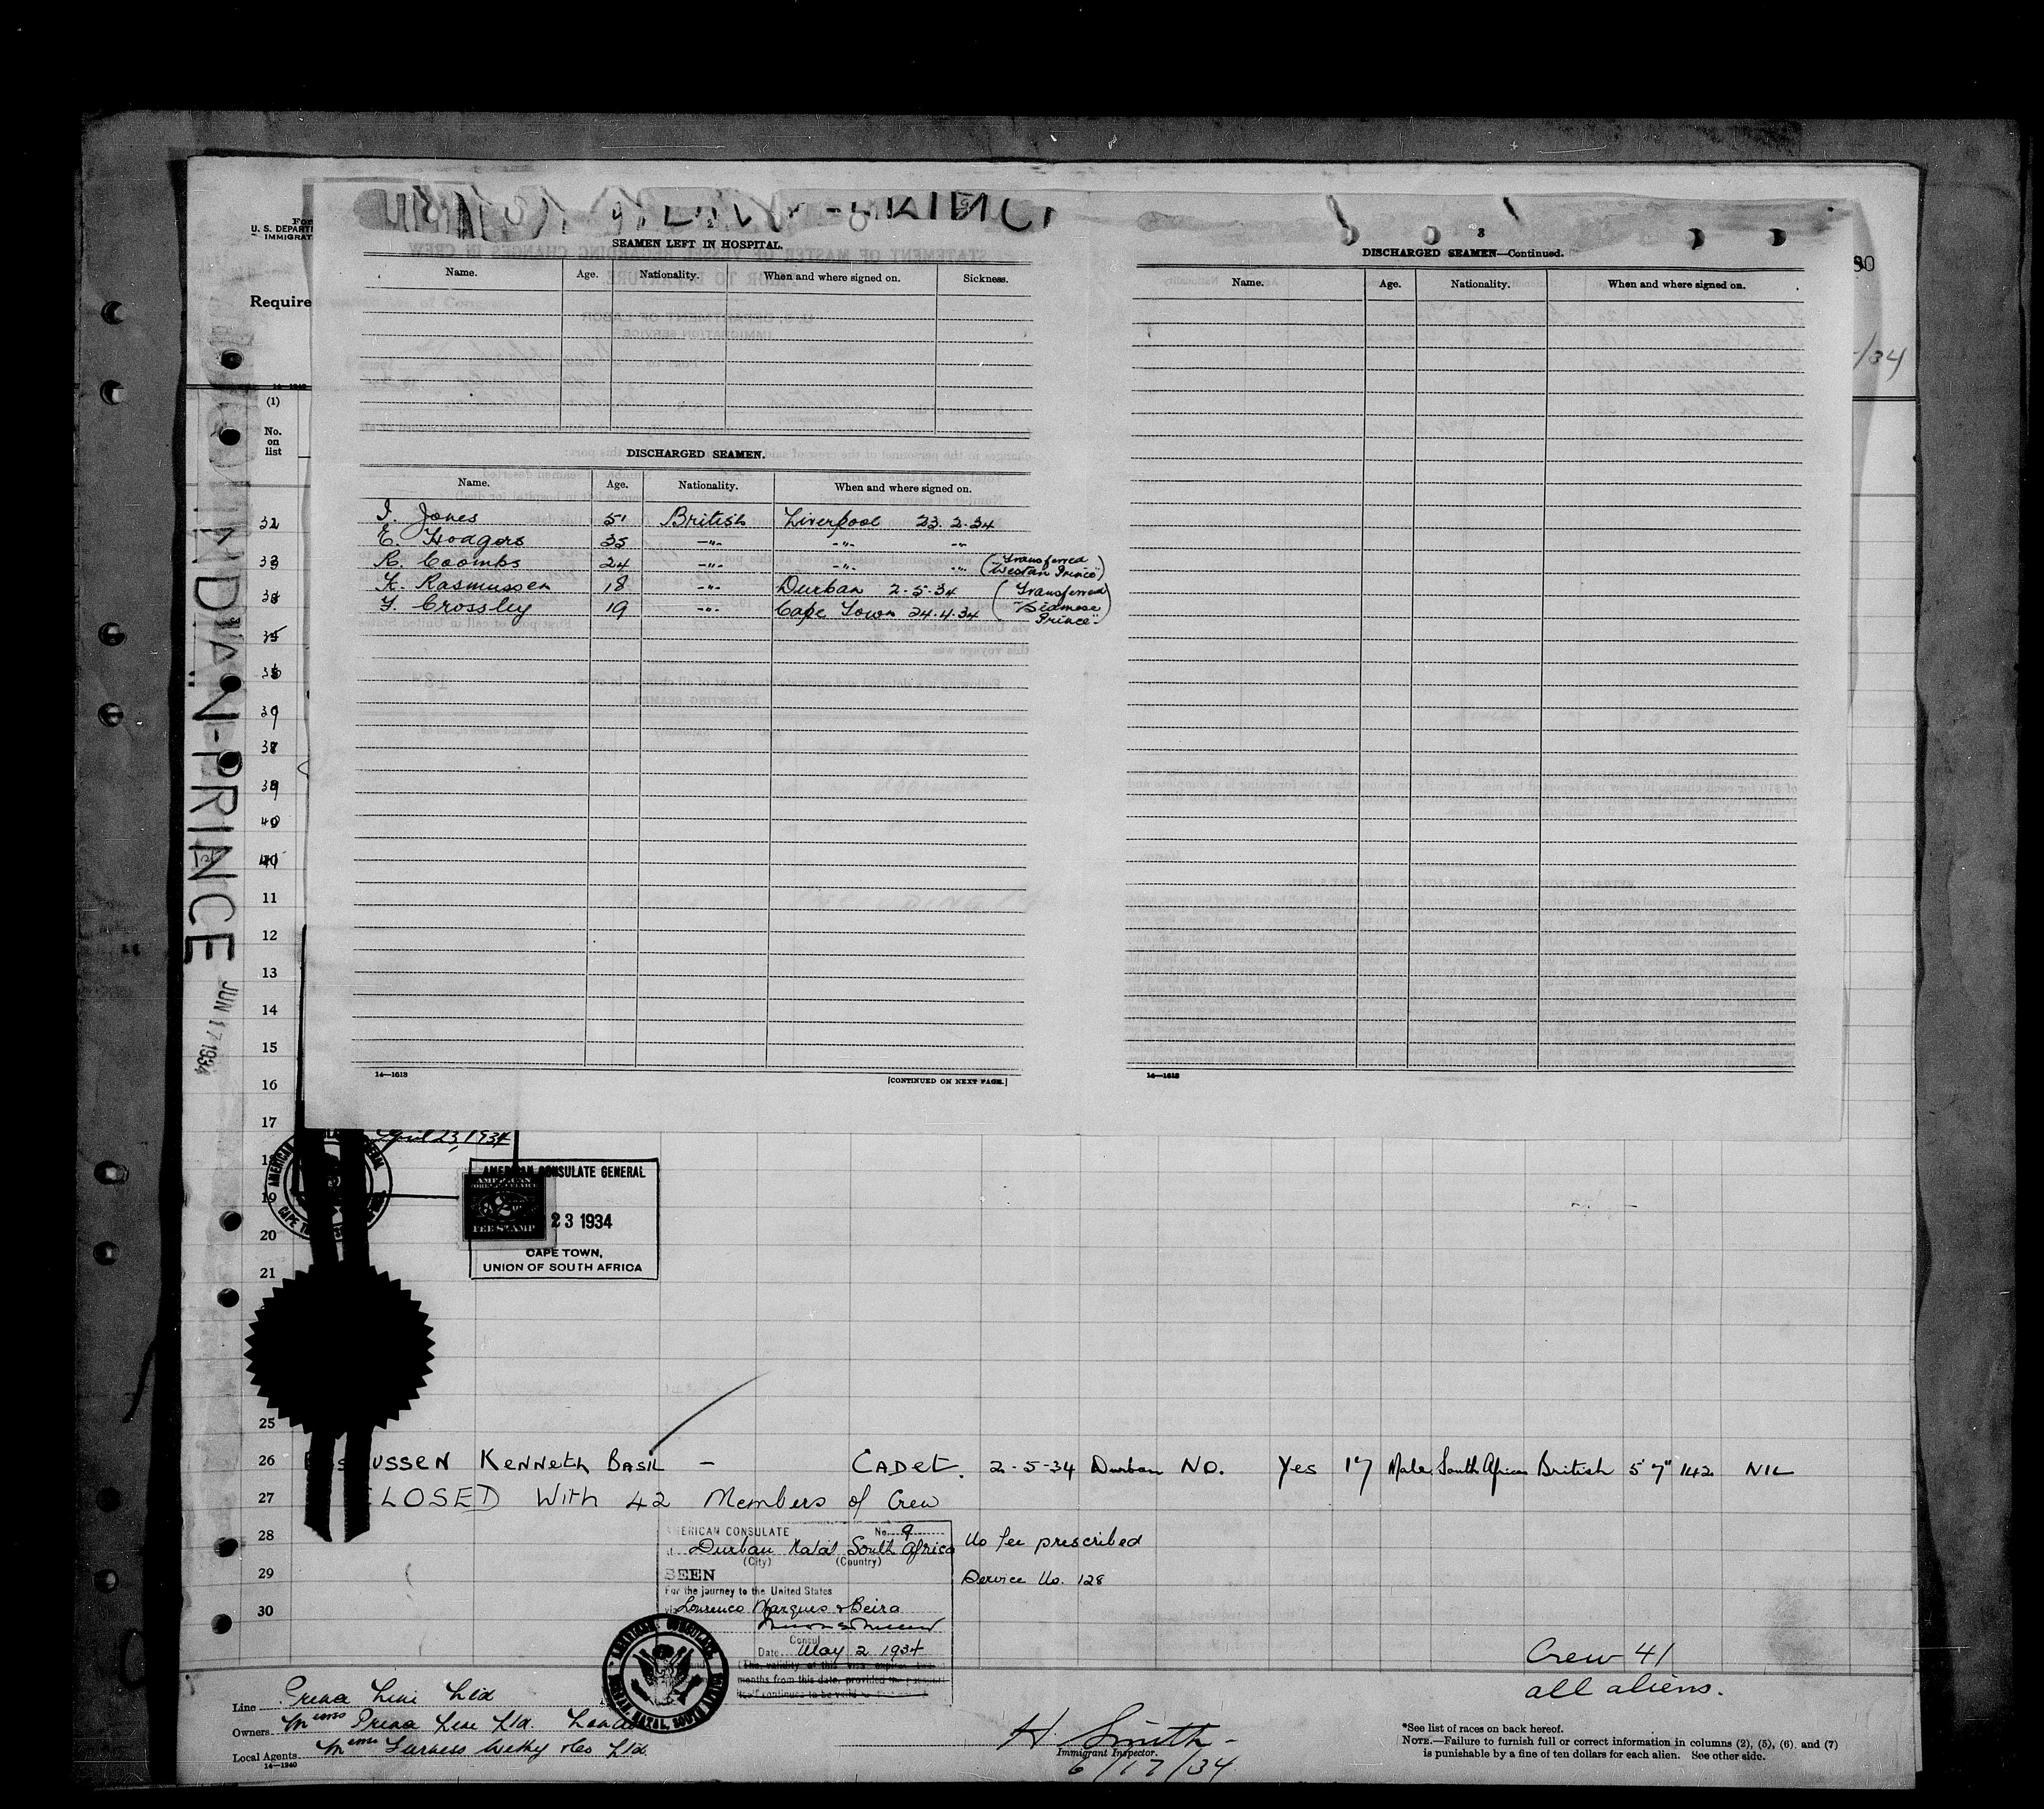 U. S. DEPART
IMMIGRAT
Require
(1)
No.
on
list
INDIAN-PRINCE
JUN 17 1934
2
SEAMEN LEFT IN HOSPITAL.
Name. Age. Nationality. When and where signed on. Sickness.
DISCHARGED SEAMEN.
Name. Age. Nationality. When and where signed on.
I. Jones 51 British Liverpool 23.2.34
E. Hodgers 35 -"- -"- -"-
R. Coombs 24 -"- -"- -"- (Transferred "Western Prince")
K. Rasmussen 18 -"- Durban 2-5-34 (Transferred
F. Crossley 19 -"- Cape Town 24.4.34 "Siamese Prince")
14—1613 [CONTINUED ON NEXT PAGE.]
3
DISCHARGED SEAMEN—Continued.
Name. Age. Nationality. When and where signed on.
14—1613
/34
32
33
34
35
36
37
38
39
40
41
11
12
13
14
15
16
17
18
19
20
21
25
26
27
28
29
30
April 23, 1934
AMERICAN CONSULATE GENERAL
23 1934
CAPE TOWN,
UNION OF SOUTH AFRICA
AMERICAN
FOREIGN SERVICE
FEE STAMP
USSEN KENNETH BASIL - CADET. 2-5-34 Durban NO. Yes 17 Male South African British 5'7" 142 NIL
CLOSED With 42 Members of Crew
AMERICAN CONSULATE No. 9
at Durban Natal South Africa
(City) (Country)
SEEN
For the journey to the United States
via Lourenco Marques & Beira
Consul
Date May 2 1934
(The validity of this visa expires two
months from this date, provided the passport
itself continues to be valid
No fee prescribed
Service No. 128
Crew 41
all aliens.
Line Prince Line Ltd
Owners Messrs Prince Line Ltd. London
Local Agents Messrs Furness Withy & Co Ltd.
14—1240
H. Smith
Immigrant Inspector.
6/17/34
*See list of races on back hereof.
NOTE.—Failure to furnish full or correct information in columns (2), (5), (6), and (7)
is punishable by a fine of ten dollars for each alien. See other side.